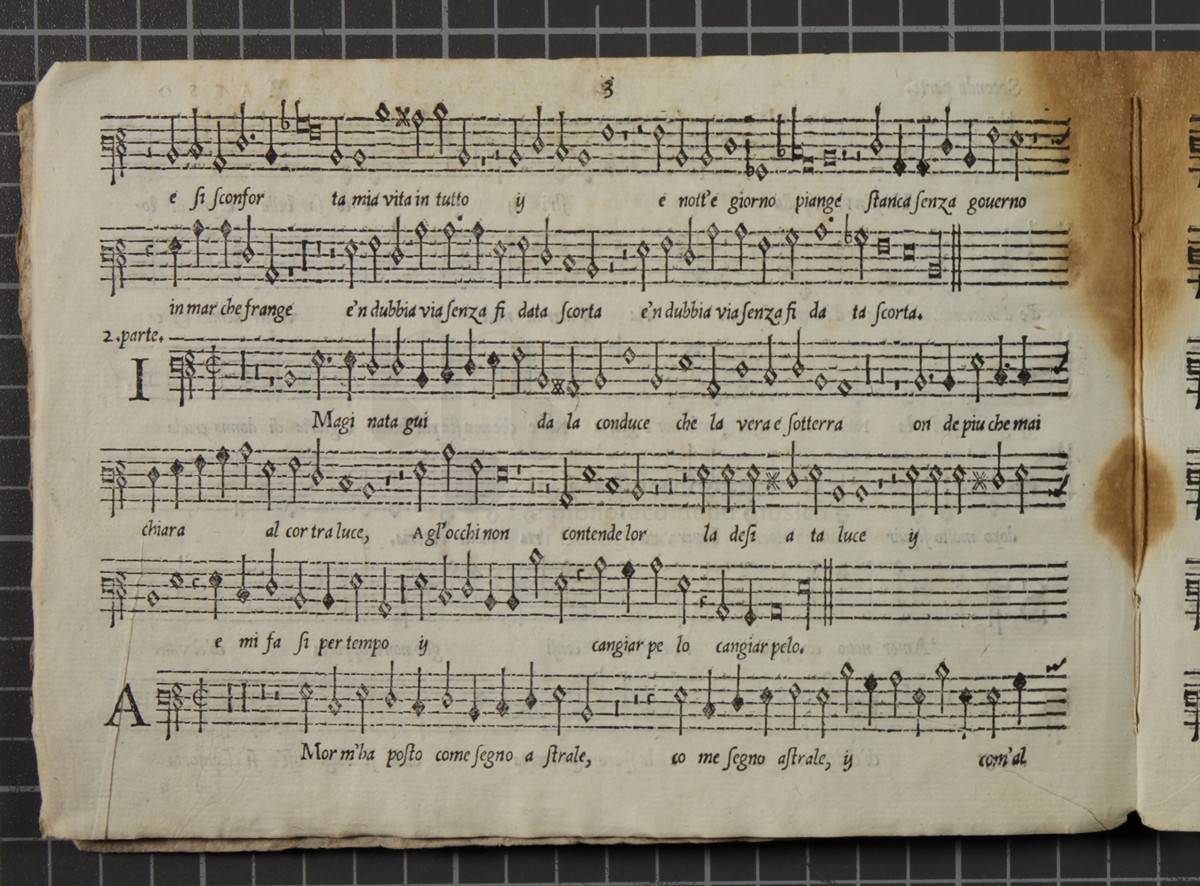 3
e ſi ſconfor ta mia vita in tutto ij e nott'e giorno piange ſtanca ſenza gouerno
in mar che frange e'n dubbia via ſenza fi data ſcorta e'n dubbia via ſenza fi da ta ſcorta.
2. parte.
I
Magi nata gui da la conduce che la vera e ſotterra on de piu che mai
chiara al cor tra luce, A gl'occhi non contende lor la deſi a ta luce ij
e mi fa ſi per tempo ij cangiar pe lo cangiar pelo.
A
Mor m'ha poſto come ſegno a ſtrale, co me ſegno aſtrale, ij com'al